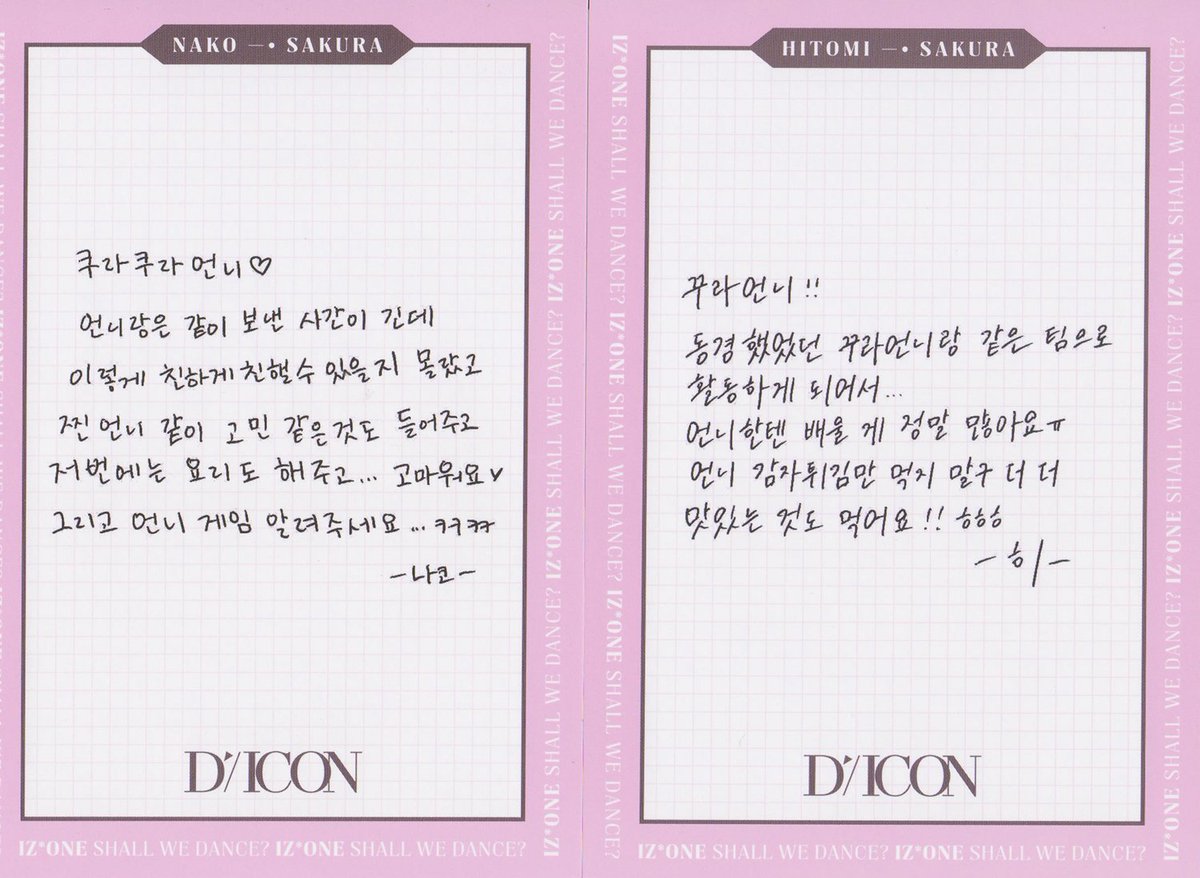 NAKO —• SAKURA
쿠라쿠라언니♡
언니랑은 같이 보낸 시간이 긴데
이렇게 친하게 친해질수 있을지 몰랐고
찐언니 같이 고민 같은것도 들어주고
저번에는 요리도 해주고... 고마워요♥
그리고 언니 게임 알려주세요... ㅋㅋㅋㅋ
-나코-
D'/ICON
IZ*ONE SHALL WE DANCE? IZ*ONE SHALL WE DANCE?
IZ*ONE SHALL WE DANCE? IZ*ONE SHALL WE DANCE?
HITOMI —• SAKURA
꾸라언니!!
동경했었던 꾸라언니랑 같은 팀으로
활동하게 되어서...
언니한텐 배울 게 정말 많아요ㅠ
언니 감자튀김만 먹지 말구 더 더
맛있는 것도 먹어요!! ㅎㅎㅎ
-히-
D'/ICON
IZ*ONE SHALL WE DANCE? IZ*ONE SHALL WE DANCE?
IZ*ONE SHALL WE DANCE? IZ*ONE SHALL WE DANCE?
IZ*ONE SHALL WE DANCE? IZ*ONE SHALL WE DANCE?